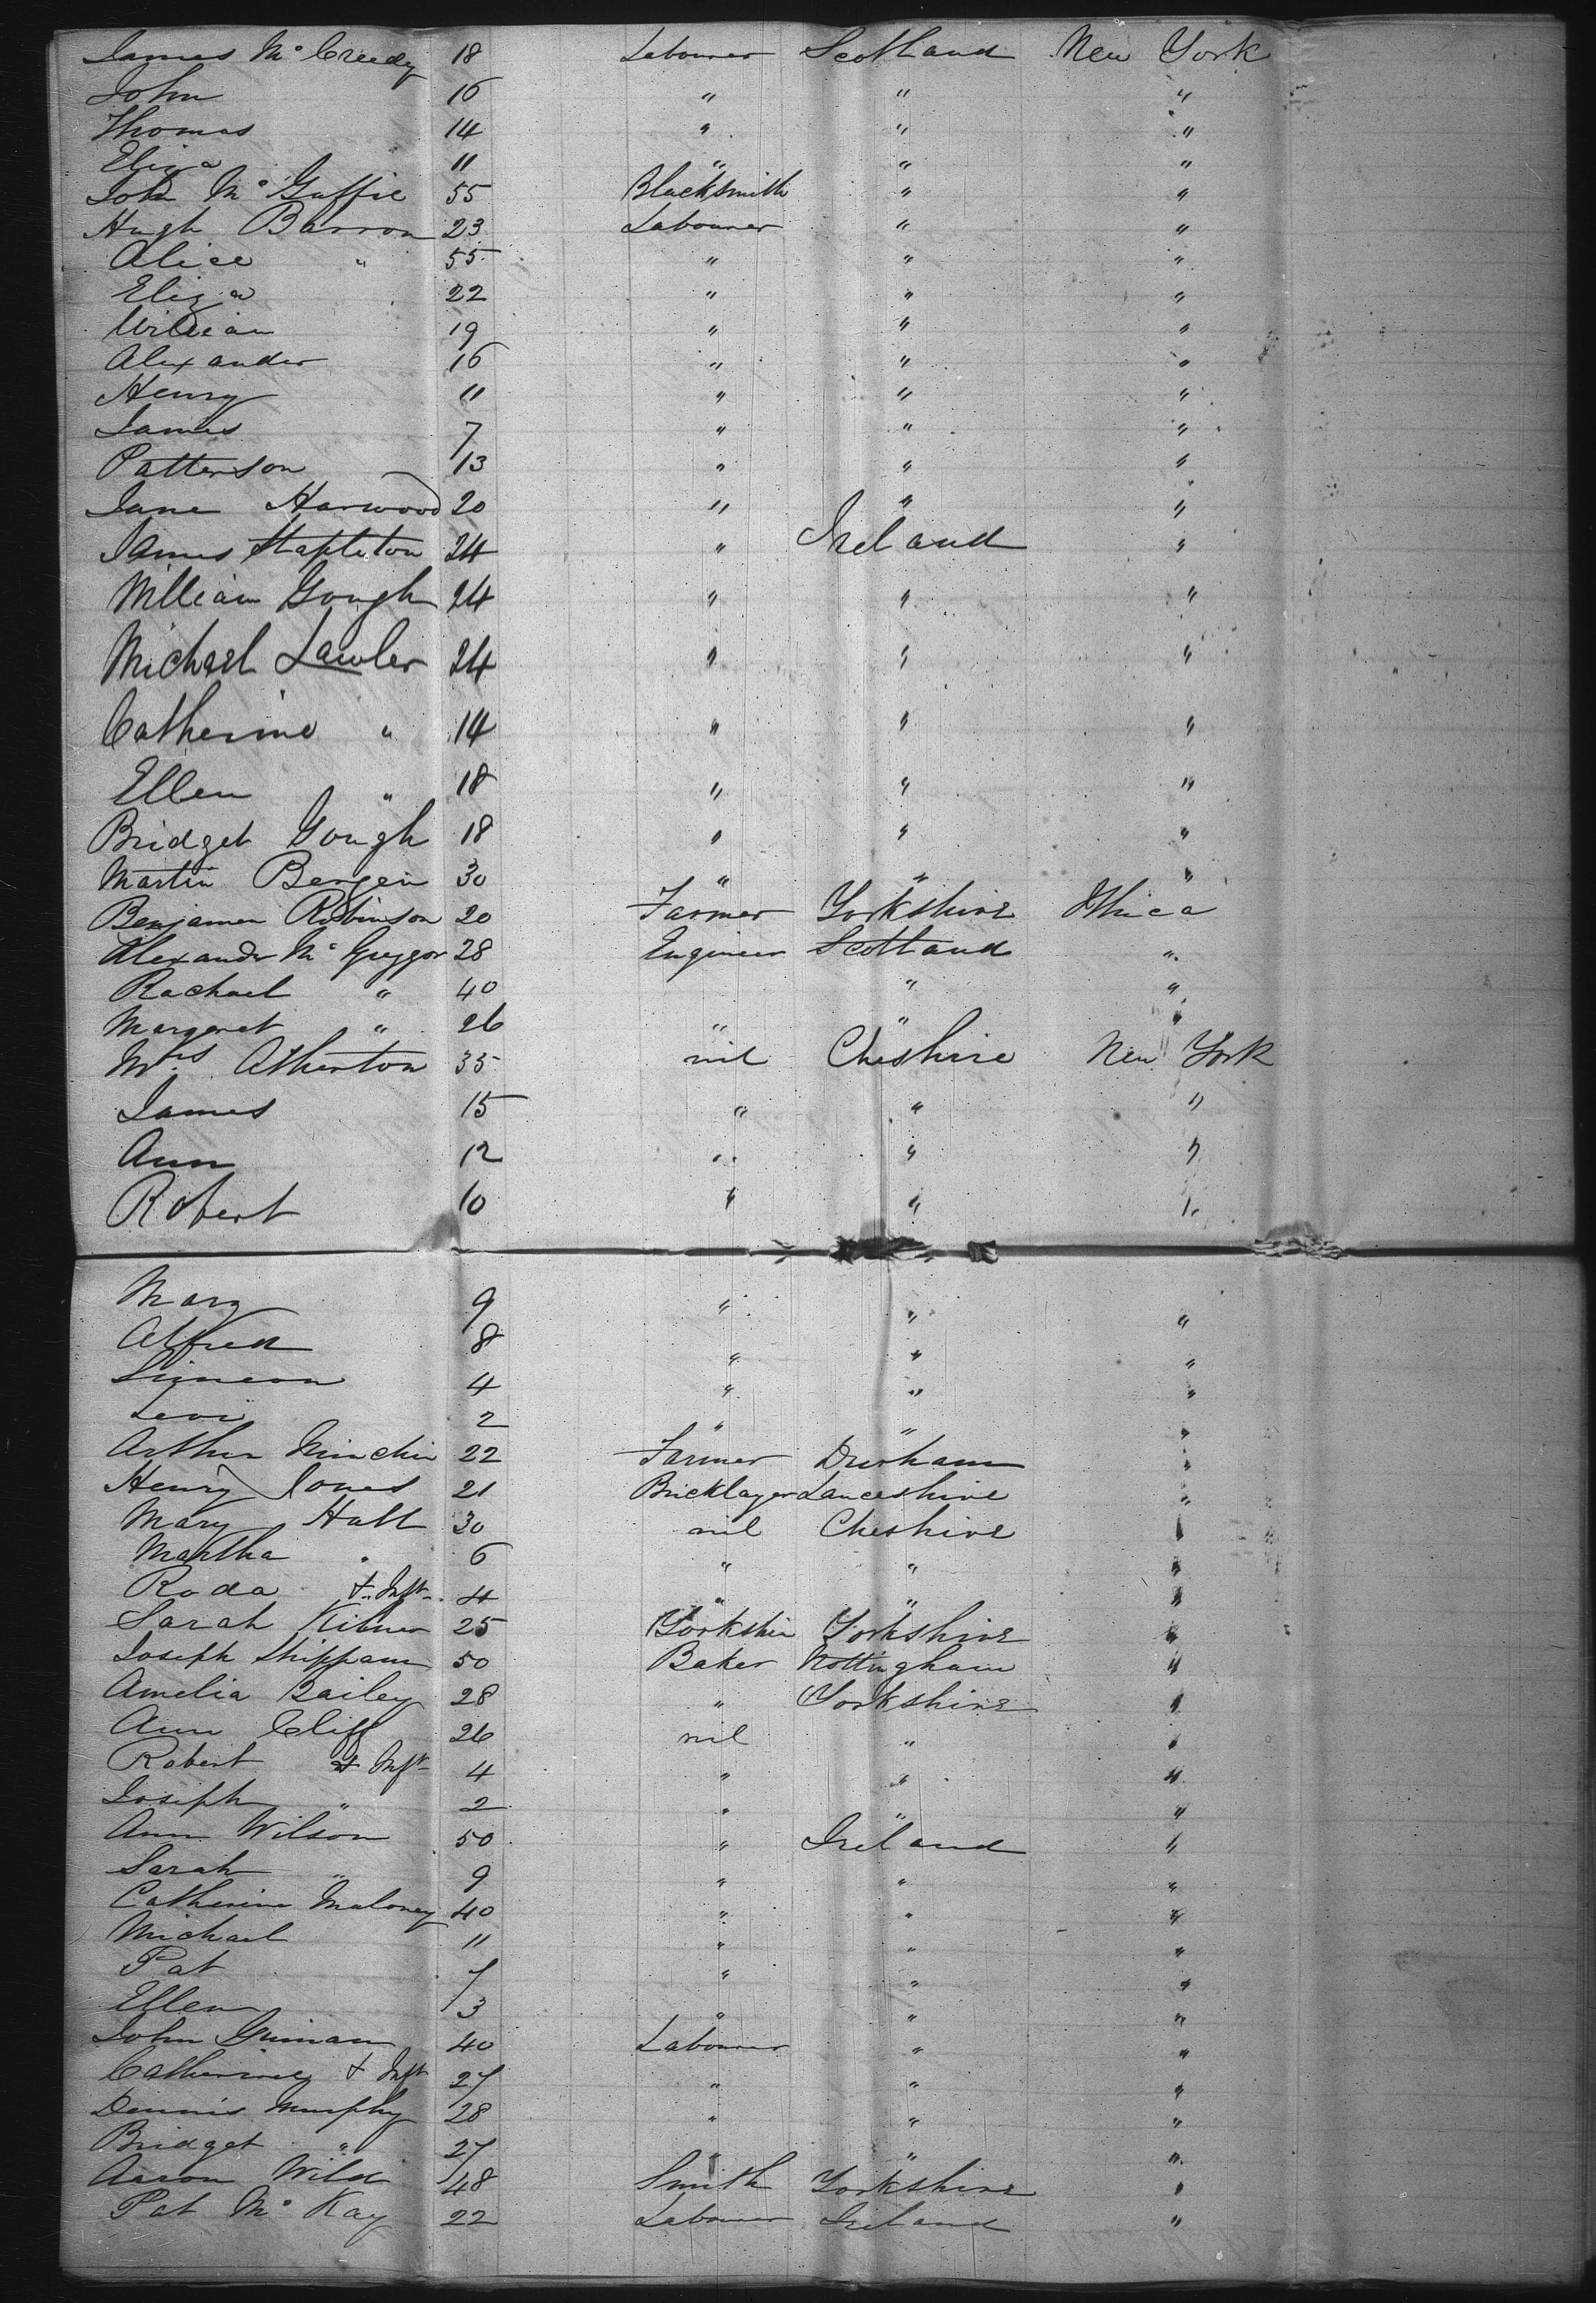 James Mc Creedy 18 Labourer Scotland New York
John 16 " " "
Thomas 14 " " "
Eliza 11 " " "
John Mc Guffie 55 Blacksmith " "
Hugh Barron 23 Labourer " "
Alice " 55 " " "
Eliza 22 " " "
William 19 " " "
Alexander 16 " " "
Henry 11 " " "
James 7 " " "
Patterson 13 " " "
Jane Harwood 20 " " "
James Stapleton 24 " Ireland "
William Gough 24 " " "
Michael Lawler 24 " " "
Catherine " 14 " " "
Ellen " 18 " " "
Bridget Gough 18 " " "
Martin Bergen 30 " " "
Benjamen Robinson 20 Farmer Yorkshire Ithica
Alexander Mc Greggor 28 Engineer Scotland "
Rachael " 40 " "
Margaret " 26 " " "
Mrs Atherton 35 nil Cheshire New York
James 15 " " "
Ann 12 " " "
Robert 10 " " "
Mary 9 " " "
Alfred 8 " " "
Simeon 4 " " "
Levi 2 " " "
Arthur Minchin 22 Farmer Durham "
Henry Jones 21 Bricklayer Lancashire "
Mary Hall 30 nil Cheshire "
Martha " 6 " " "
Roda + Inft 4 " " "
Sarah 25 Yorkshire Yorkshire "
Joseph Shippam 50 Baker Nottingham "
Amelia Bailey 28 " Yorkshire "
Ann Cliff 26 nil " "
Robert + Inft 4 " " "
Joseph " 2 " " "
Ann Wilson 50 " Ireland "
Sarah " 9 " " "
Catherine Maloney 40 " " "
Michael 11 " " "
Pat 7 " " "
Ellen 3 " " "
John Guinan 40 Labourer " "
Catherine + Inft 27 " " "
Dennis Murphy 28 " " "
Bridget " 27 " " "
Aaron Wild 48 Smith Yorkshire "
Pat Mc Kay 22 Labourer Ireland "